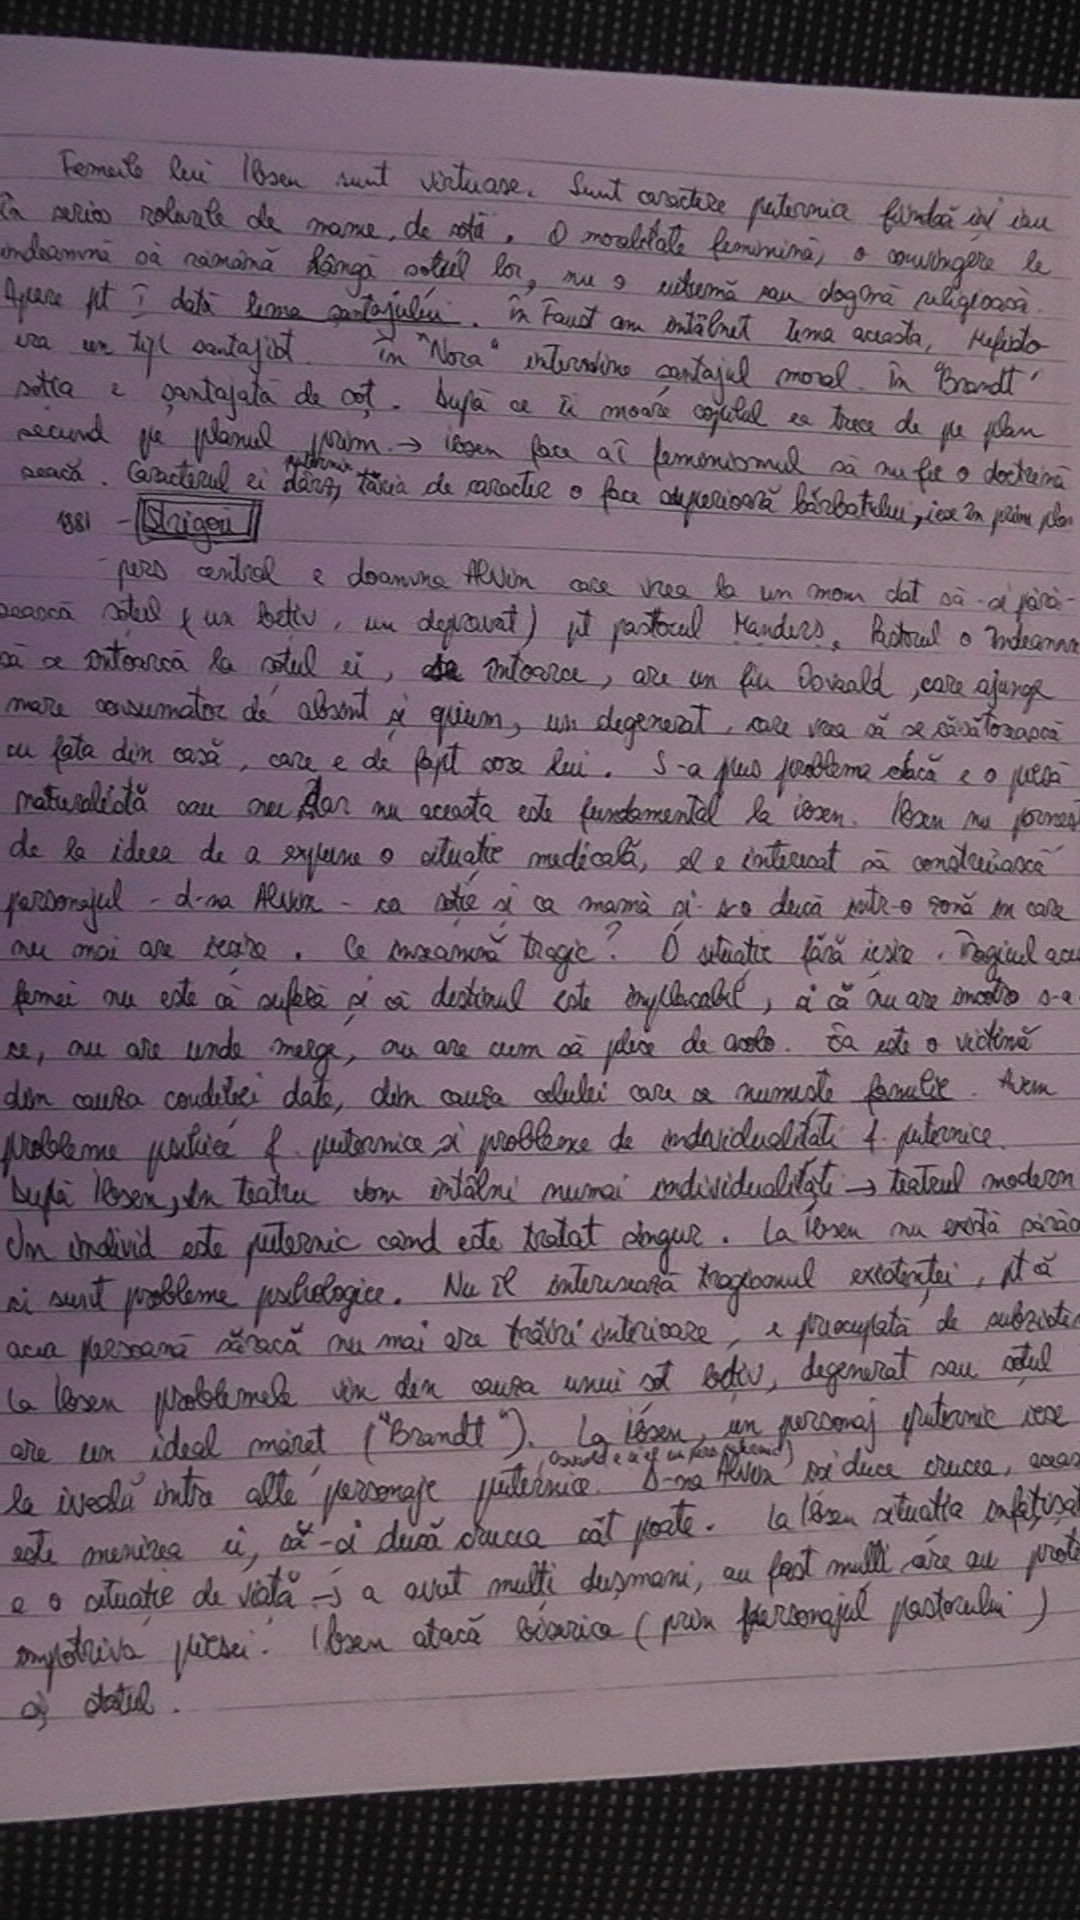 Femeile lui Ibsen sunt virtuase. Sunt caractere puternice fiindcă își iau
în serios rolurile de mame, de soții. O moralitate feminină, o convingere le
îndeamnă să rămână lângă soțul lor, nu o cutumă sau dogmă religioasă.
Apare pt I dată tema șantajului. În Faust am întâlnit tema aceasta, Mefisto
era un tip șantajist. În "Nora" intervine șantajul moral. În "Brandt"
soția e șantajată de soț. După ce îi moare copilul ea trece de pe plan
secund pe planul prim → Ibsen face ca feminismul să nu fie o doctrină
seacă. Caracterul ei puternic dârz, tăria de caracter o face superioară bărbatului, iese în prim plan
1881 - Strigoii
- pers central e doamna Alvin care vrea la un mom dat să-și pără-
sească soțul (un bețiv, un depravat) pt pastorul Manders. Pastorul o îndeamnă
să se întoarcă la soțul ei, se întoarce, are un fiu Osvald, care ajunge
mare consumator de absint și opium, un degenerat, care vrea să se căsătorească
cu fata din casă, care e de fapt sora lui. S-a pus problema dacă e o piesă
naturalistă sau nu, dar nu aceasta este fundamental la Ibsen. Ibsen nu pornește
de la ideea de a expune o situație medicală, el e interesat să construiască
personajul - d-na Alvin - ca soție și ca mamă și s-o ducă într-o zonă în care
nu mai are ieșire. Ce înseamnă tragic? O situație fără ieșire. Tragicul acestei
femei nu este că suferă și că destinul este implacabil, ci că nu are încotro s-a
ce, nu are unde merge, nu are cum să plece de acolo. Ea este o victimă
din cauza condiției date, din cauza celului care se numește familie. Avem
probleme psihice f. puternice și probleme de individualități f. puternice.
După Ibsen, în teatru vom întâlni numai individualități → teatrul modern
Un individ este puternic când este tratat singur. La Ibsen nu există sărăcie
ci sunt probleme psihologice. Nu îl interesează tragismul existenței, pt că
acea persoană săracă nu mai are trăiri interioare, e preocupată de subzistență
La Ibsen problemele vin din cauza unui soț bețiv, degenerat sau soțul
are un ideal măreț ("Brandt"). La Ibsen, un personaj puternic iese
la iveală între alte personaje puternice (Osvald e și el un pers puternic). D-na Alvin își duce crucea, aceasta
este menirea ei, să-și ducă crucea cât poate. La Ibsen situația înfățișată
e o situație de viață → a avut mulți dușmani, au fost mulți care au protestat
împotriva piesei. Ibsen atacă biserica (prin personajul pastorului)
și statul.